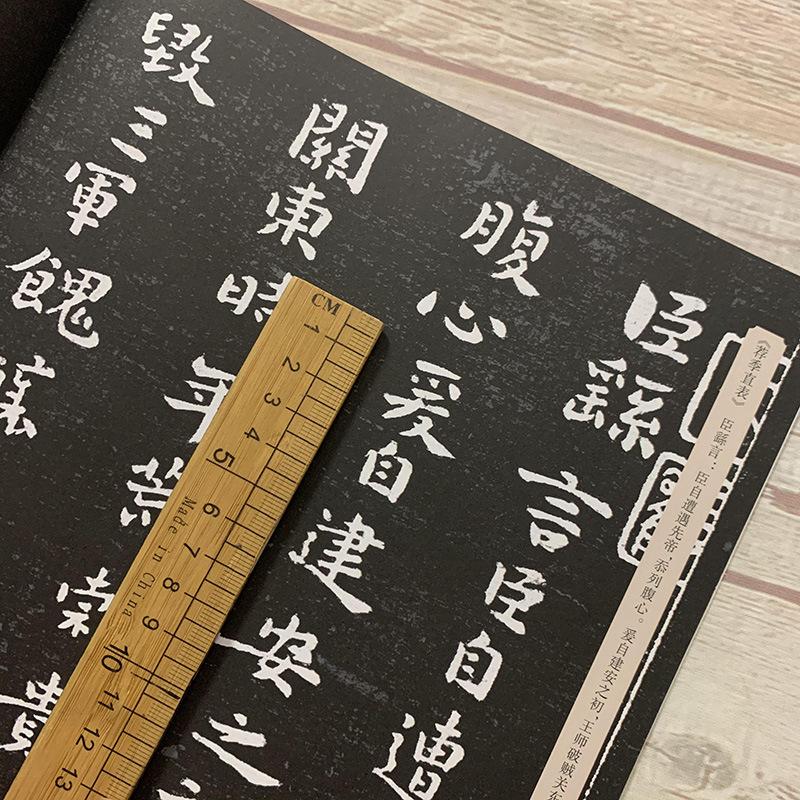 《荐季直表》 臣繇言：臣自遭遇先帝，忝列腹心。爰自建安之初，王师破贼关东
臣繇言臣自遭
腹心爰自建安之
關東時年荒
毀三軍餽饟
CM
1 2 3 4 5 6 7 8 9 10 11 12 13
Made in China